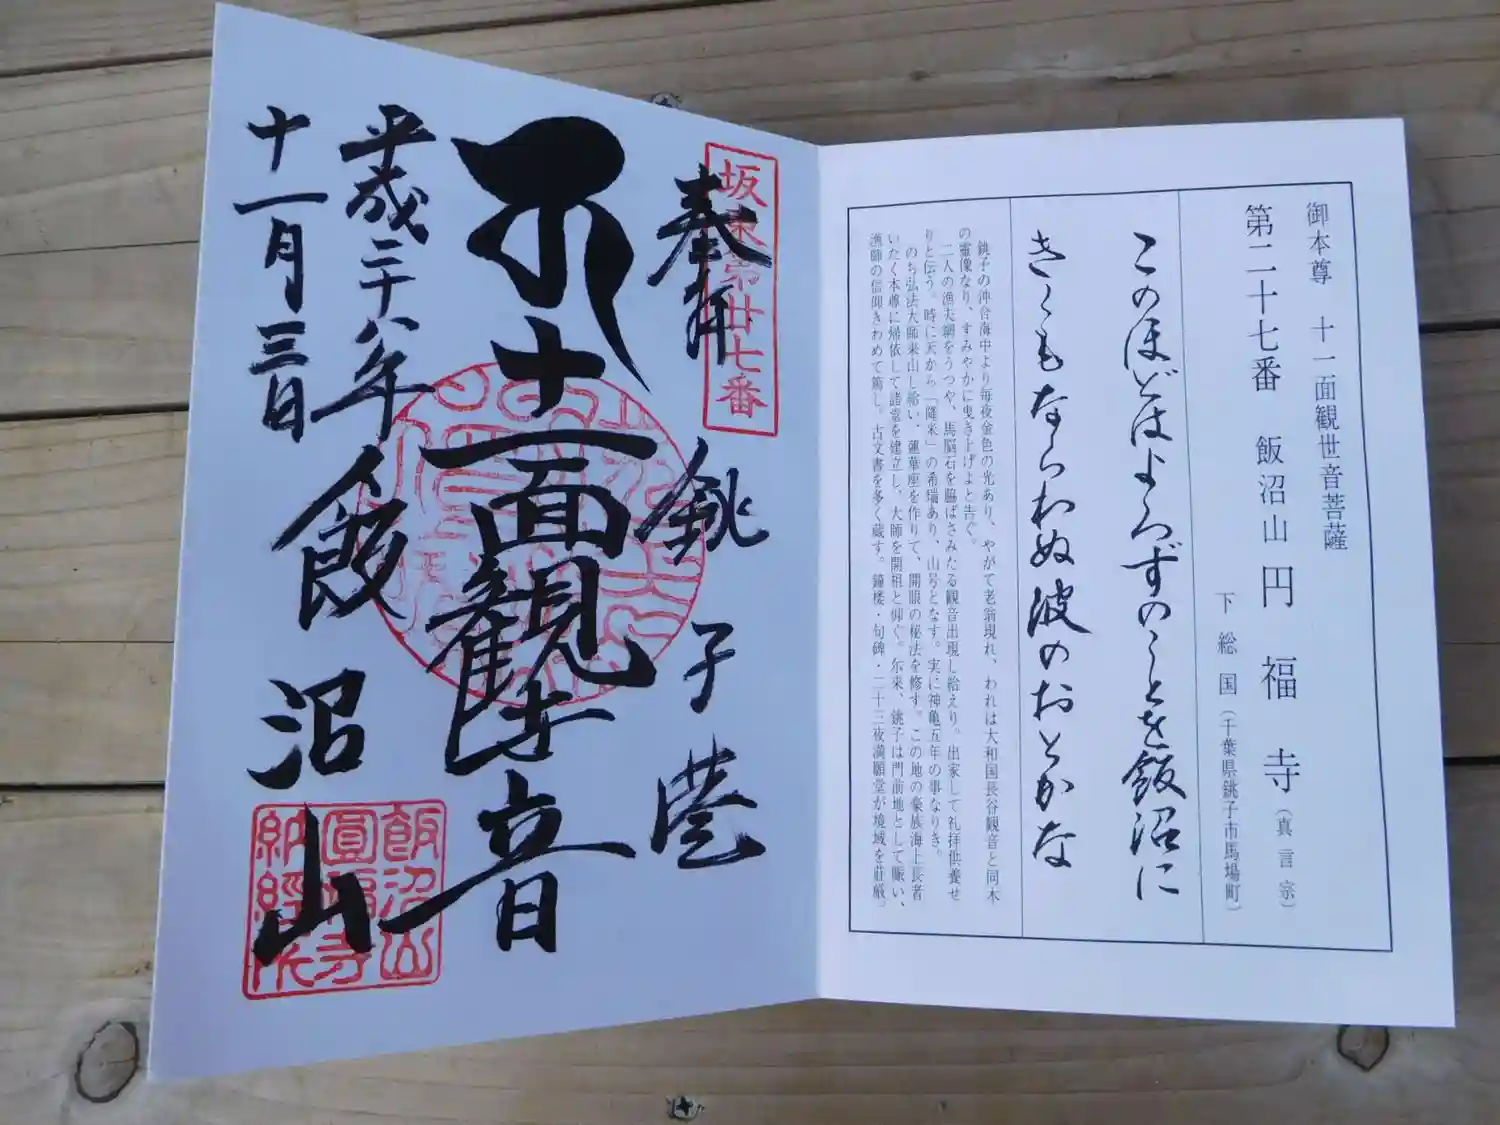 御本尊 十一面観世音菩薩
第二十七番 飯沼山 円福寺（真言宗）
下総国（千葉県銚子市馬場町）
このほどはよろずのことを飯沼に
きくもならわぬ波のおとかな
銚子の沖合海中より毎夜金色の光あり、やがて老翁現れ、われは大和国長谷観音と同木
の霊像なり、すみやかに曳き上げよと告ぐ。
二人の漁夫網をうつや、馬脳石を脇ばさみたる観音出現し給えり。出家して礼拝供養せ
りと伝う。時に天から「降米」の希瑞あり、山号となす。実に神亀五年の事なりき。
のち弘法大師来山し給い、蓮華座を作りて、開眼の秘法を修す。この地の豪族海上長者
いたく本尊に帰依して諸堂を建立し、大師を開祖と仰ぐ。尓来、銚子は門前地として賑い、
漁師の信仰きわめて篤し。古文書を多く蔵す。鐘楼・句碑・二十三夜満願堂が境域を荘厳。
坂東第廿七番
奉拝
銚子
十一面観世音
平成二十八年
十一月三日
飯沼山
飯沼山
圓福寺
納経所